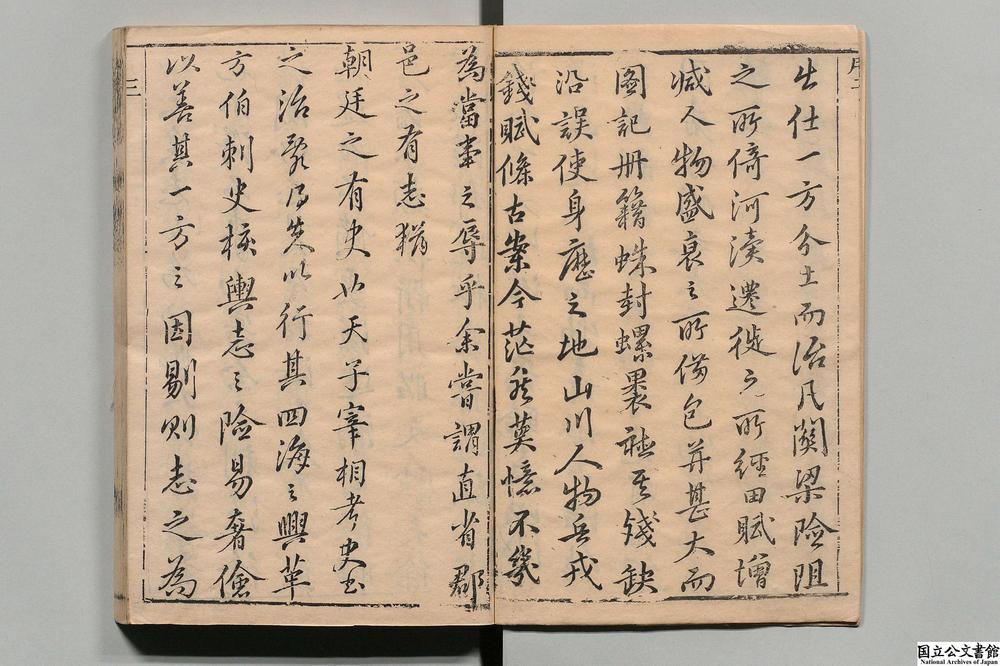 出仕一方分土而治凡關梁險阻
之所倚河瀆遷徙之所經田賦增
減人物盛衰之所備包并甚大而
圖記册籍蛛封螺裹雖至殘缺
沿誤使身歷之地山川人物兵戎
錢賦條古案今茫然莫憶不幾
為當事之辱乎余嘗謂直省郡
邑之有志猶
朝廷之有史以天子宰相考史書
之治亂得失以行其四海之興革
方伯刺史核輿志之險易奢儉
以善其一方之因剔則志之為
三
国立公文書館
National Archives of Japan